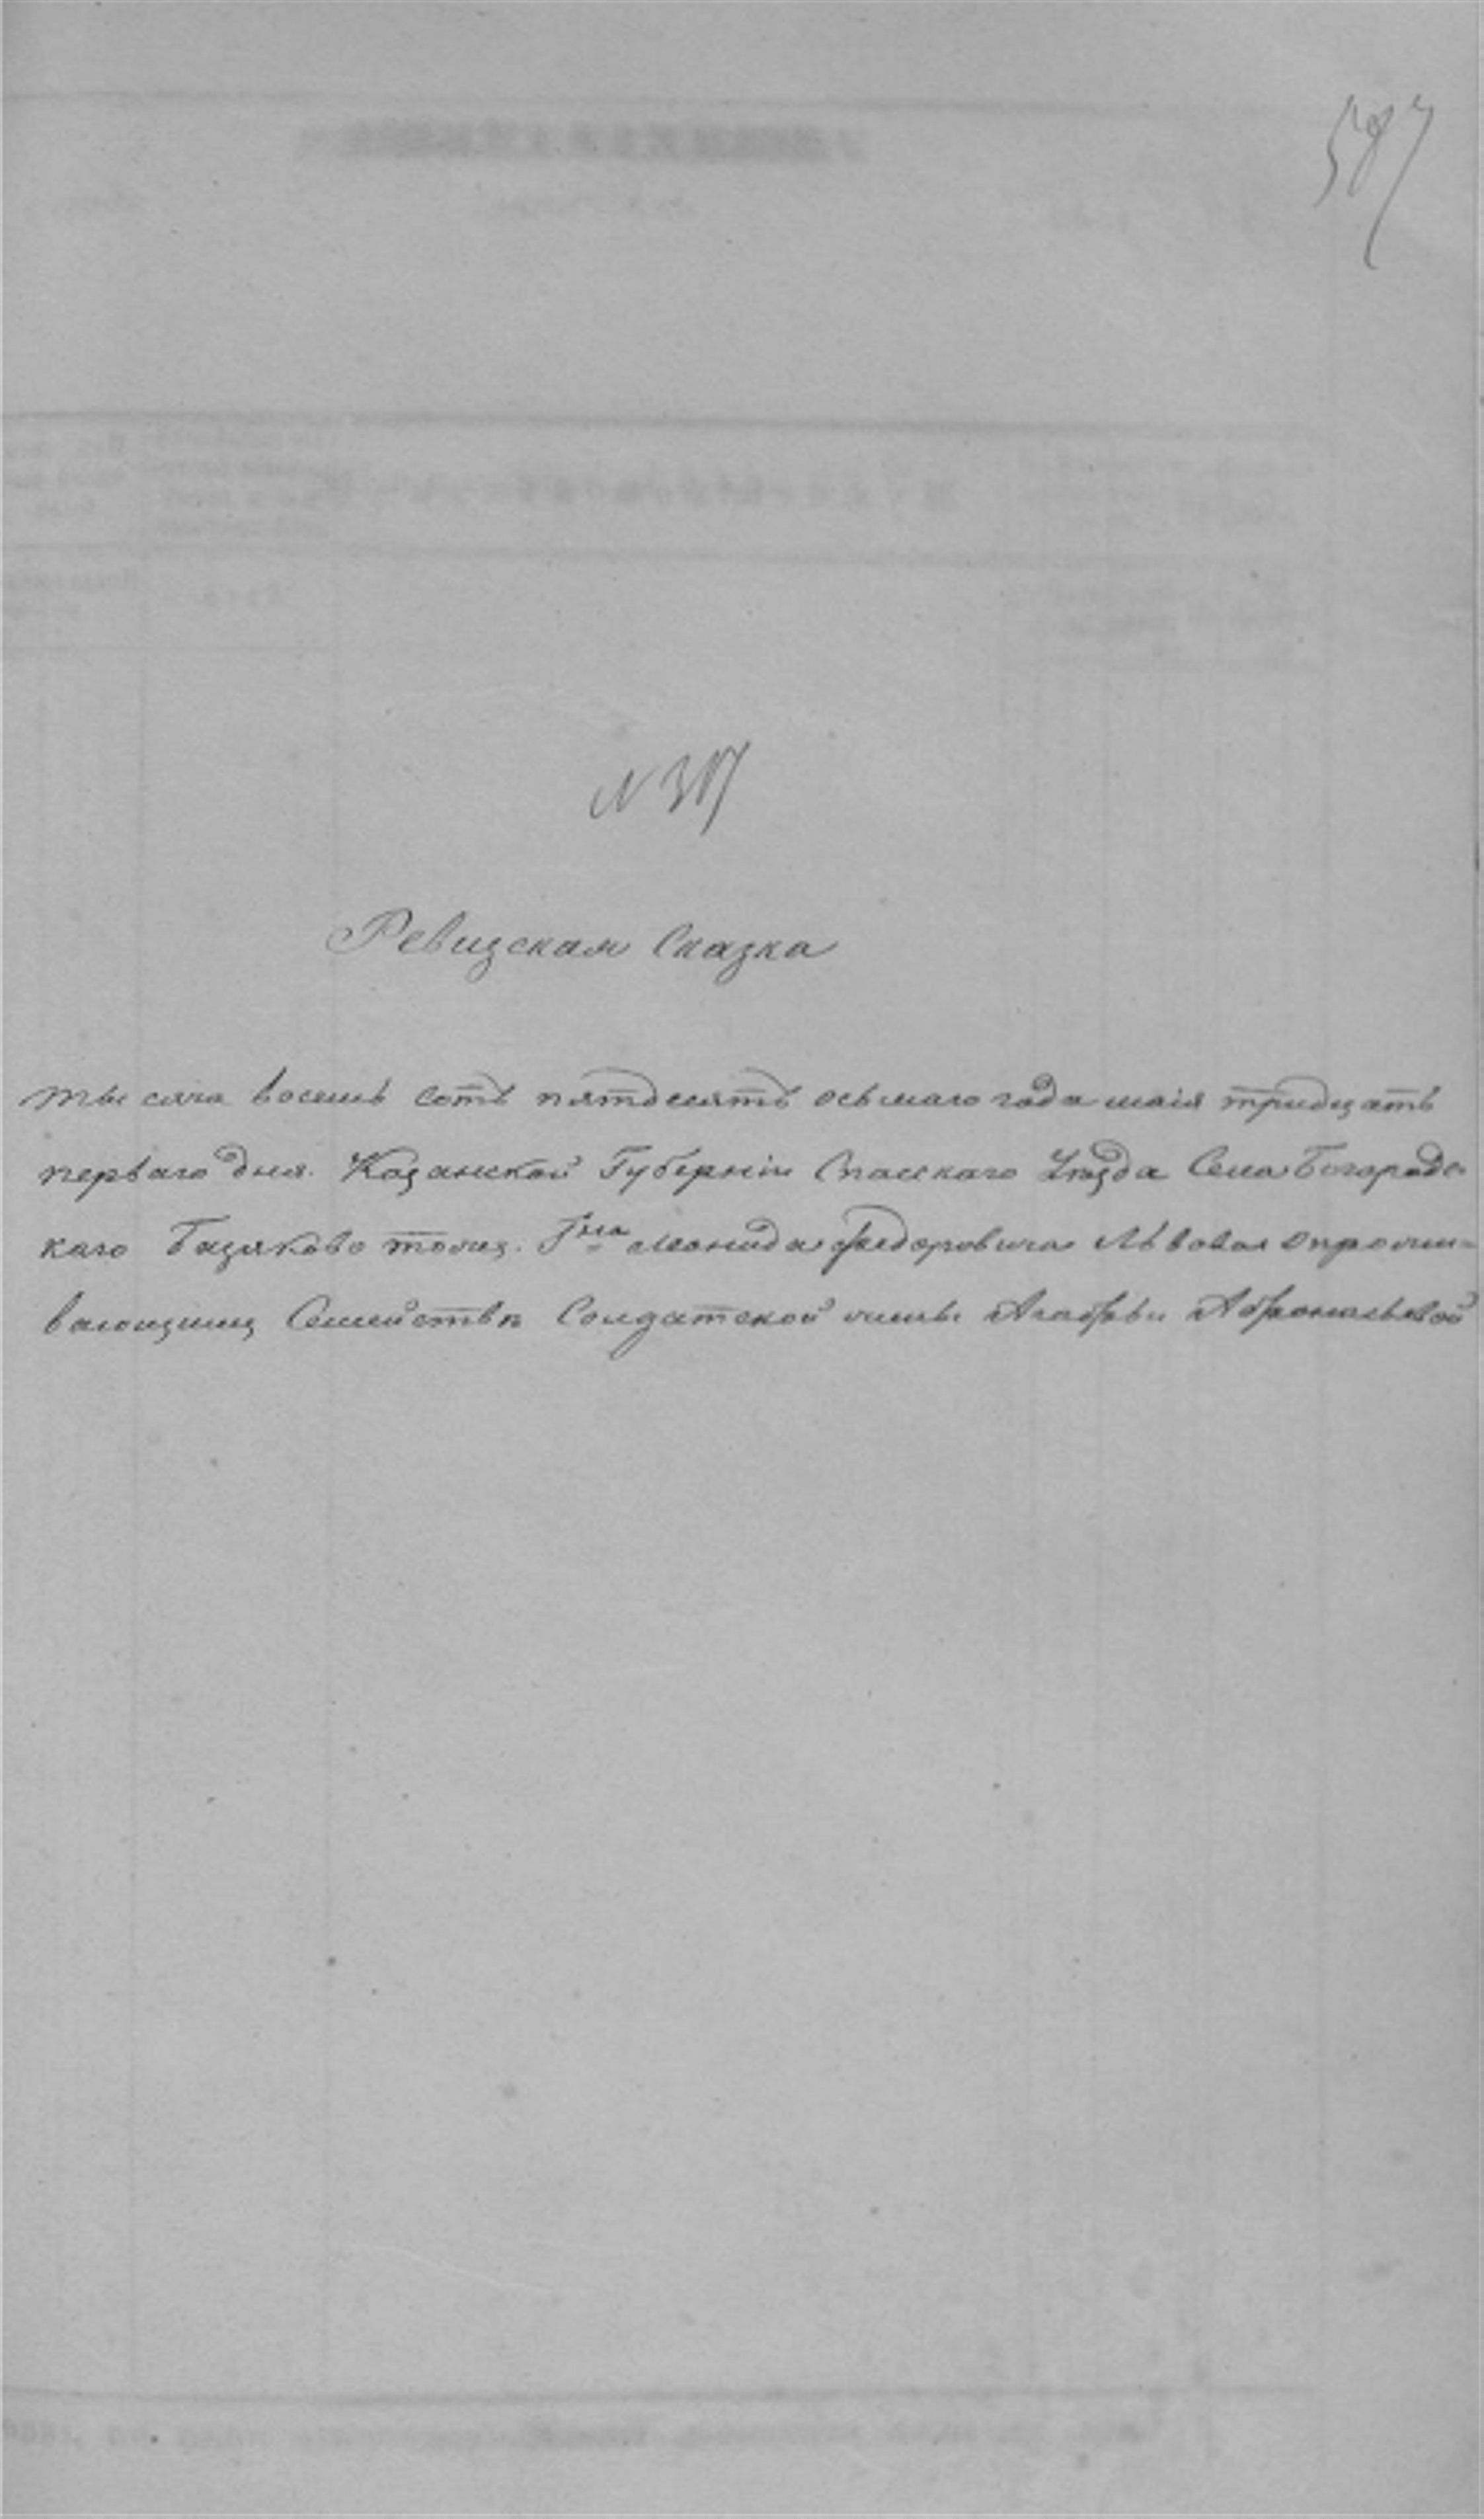 587
N 317
Ревизская Сказка
тысяча восемь сотъ пятдесятъ осьмаго года маія тридцать
перваго дня. Казанской Губерніи Спаскаго Уезда Села Богородс-
каго тожъ. Гна Леонида Федоровича Львова о
Семействе Солдатской жены Агафьи Афонасьевой